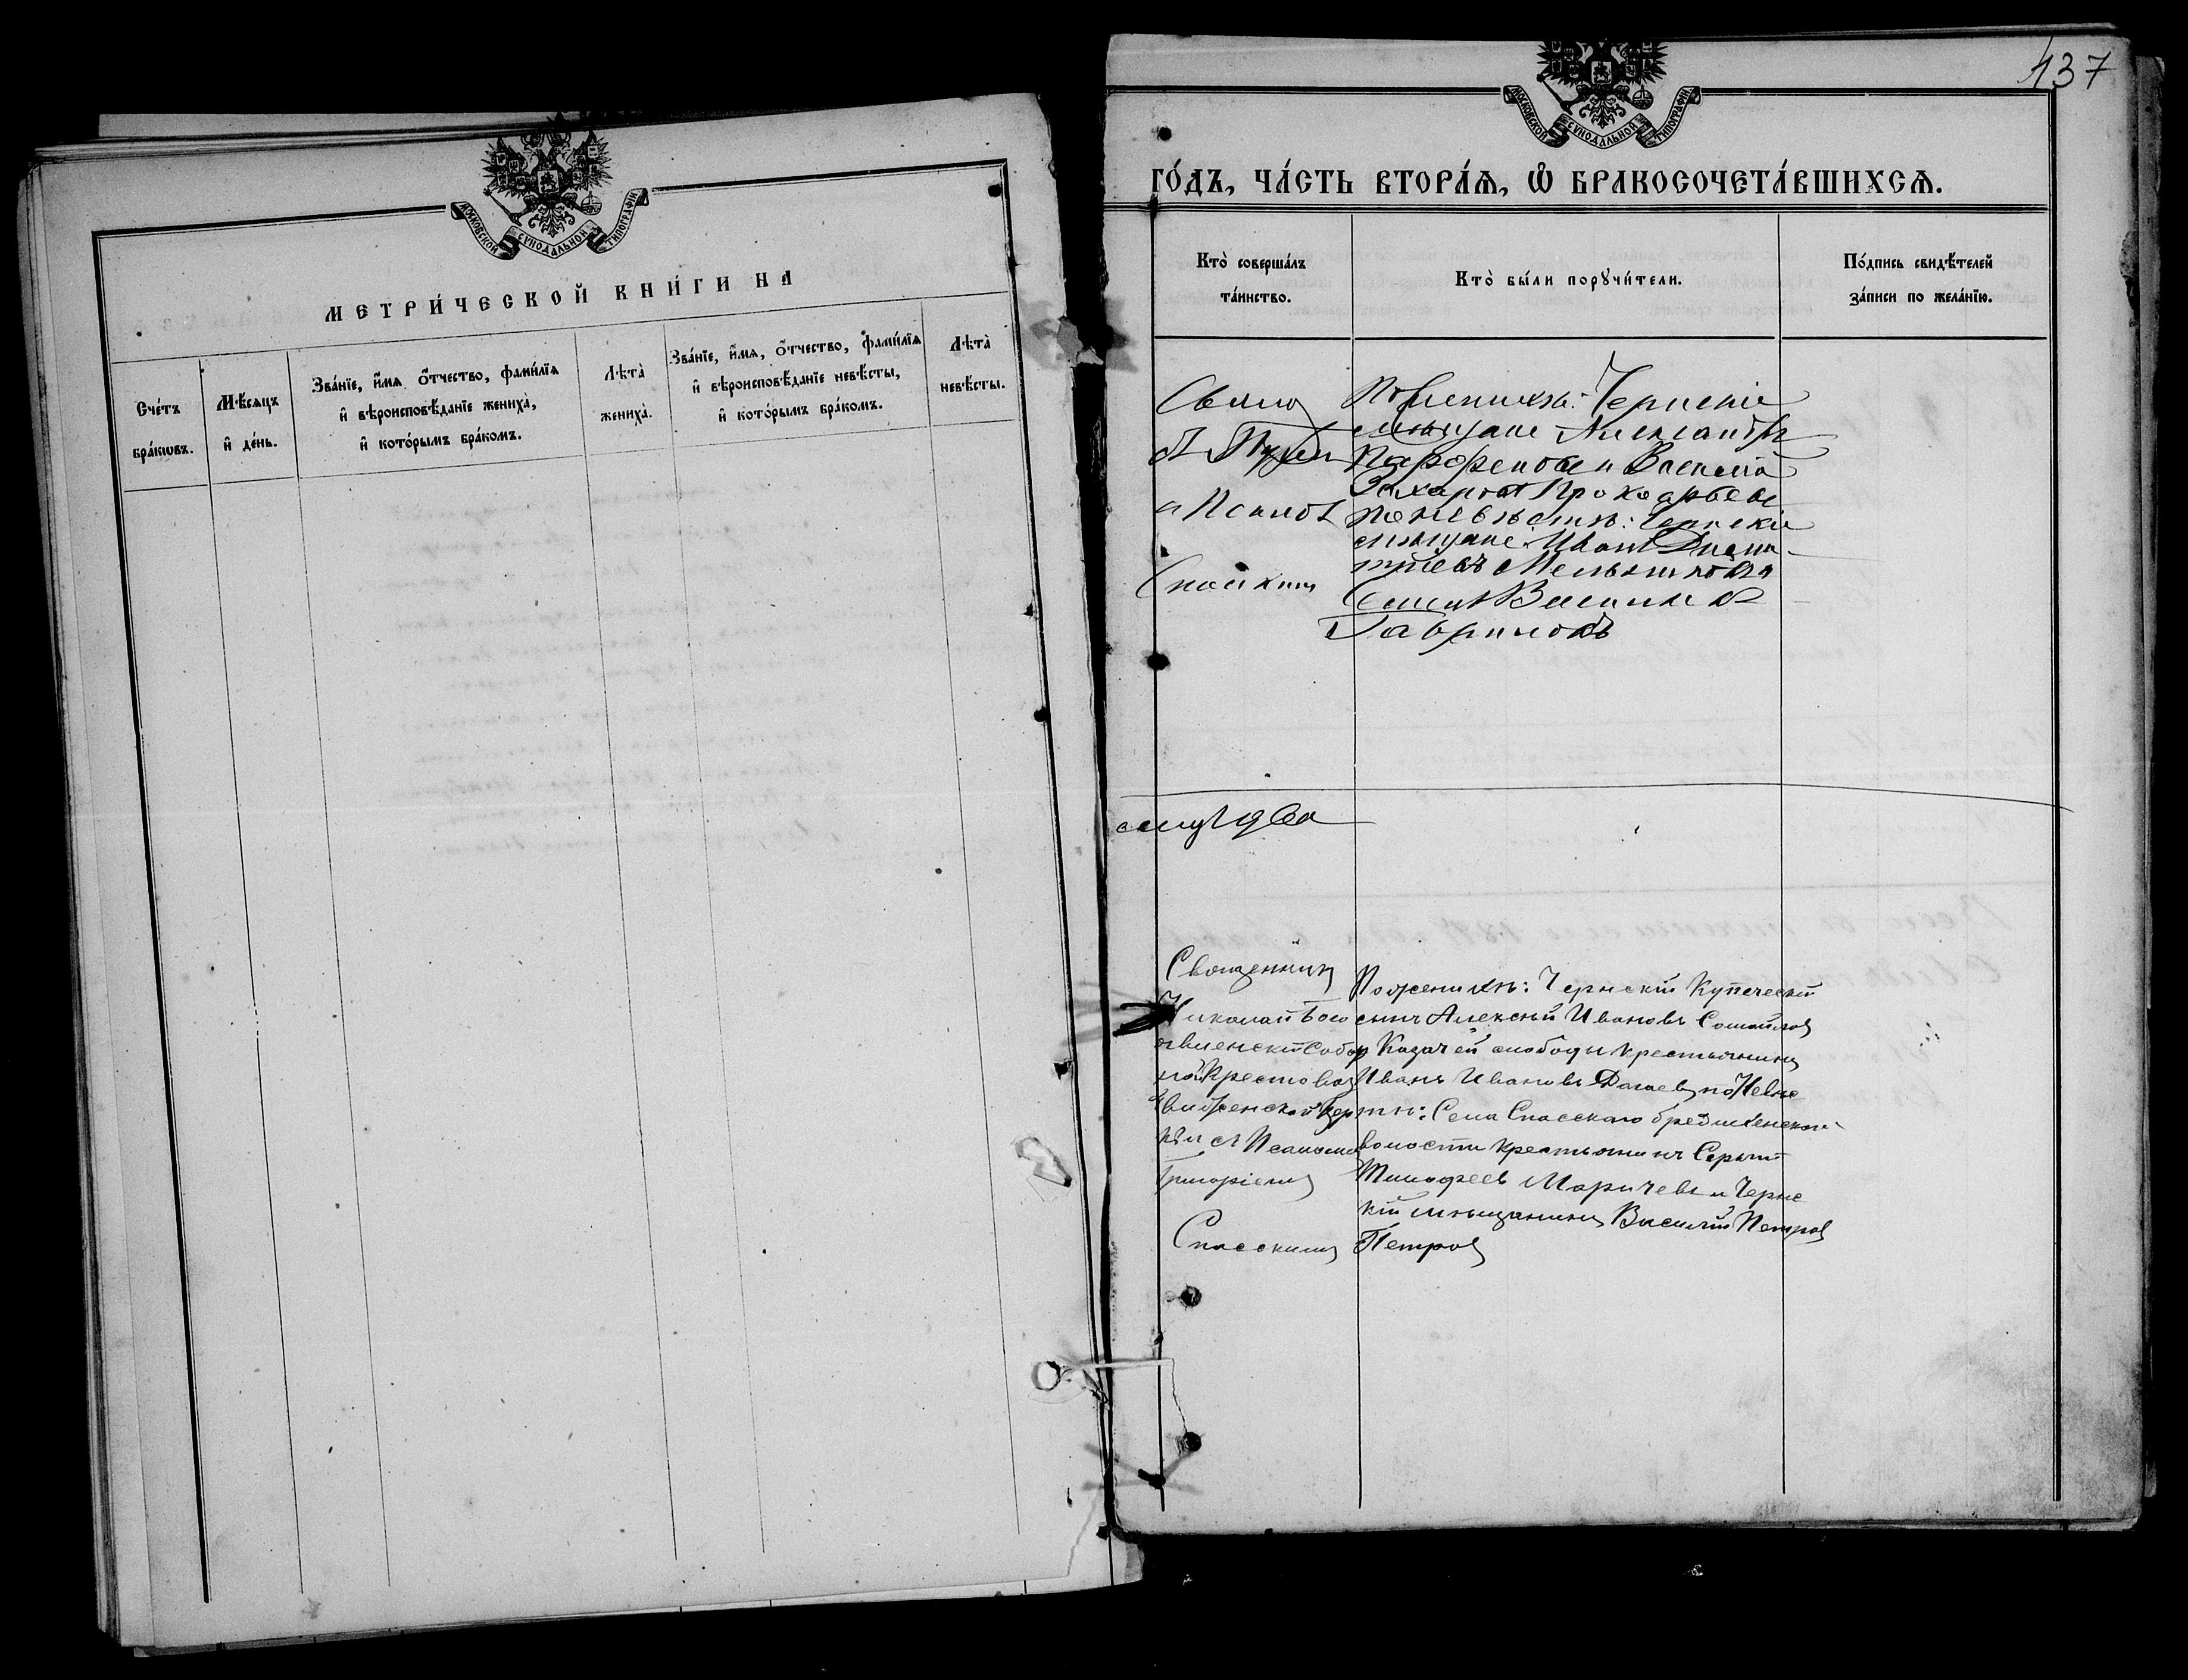 МОСКОВСКОЙ СѴНОДАЛЬНОЙ ТИПОГРАФІИ
МЕТРИ́ЧЕСКОЙ КНИ́ГИ НА
Сче́тъ бра́кѡвъ.
Мѣ́сяцъ и҆ де́нь.
Зва́нїе, и҆́мѧ, ѻ҆́тчество, фами́лїѧ
и҆ вѣроисповѣ́данїе жениха̀,
и҆ кото́рымъ бра́комъ.
Лѣта̀ жениха̀.
Зва́нїе, и҆́мѧ, ѻ҆́тчество, фами́лїѧ
и҆ вѣроисповѣ́данїе невѣ́сты,
и҆ кото́рымъ бра́комъ.
Лѣта̀ невѣ́сты.
137
МОСКОВСКОЙ СѴНОДАЛЬНОЙ ТИПОГРАФІИ
ГО́ДЪ, ЧА́СТЬ ВТОРА́Ѧ, Ѽ БРАКОСОЧЕТА́ВШИХСѦ.
Кто̀ соверша́лъ
та́инство.
Кто̀ бы́ли порꙋчи́тели.
По́дпись свидѣ́телей
за́писи по жела́нїю.
По женихѣ: Чернскіе
мѣщане Александръ
Парфеновъ и Василій
Захаровъ
по невѣстѣ: Чернскіе
мѣщане Иванъ Дмит
ріевъ Мельниковъ и
Василій
Гавриловъ
Спасским
два
Священникъ
Николай Бого
явленскій Собор
ной Крестовоз
движенской Цер
кви съ Псаломщ
Григоріемъ
Спасскимъ
По женихѣ: Чернскій Купеческій
сынъ Алексѣй Ивановъ Самойлов
Казачей слободы крестьянинъ
Иванъ Ивановъ по Невѣс
тѣ: Села Спасскаго Бредихинской
волости крестьянинъ Сергѣй
Тимофеевъ Маричевъ и Чернс
кій мѣщанинъ Василій Петров
Петровъ